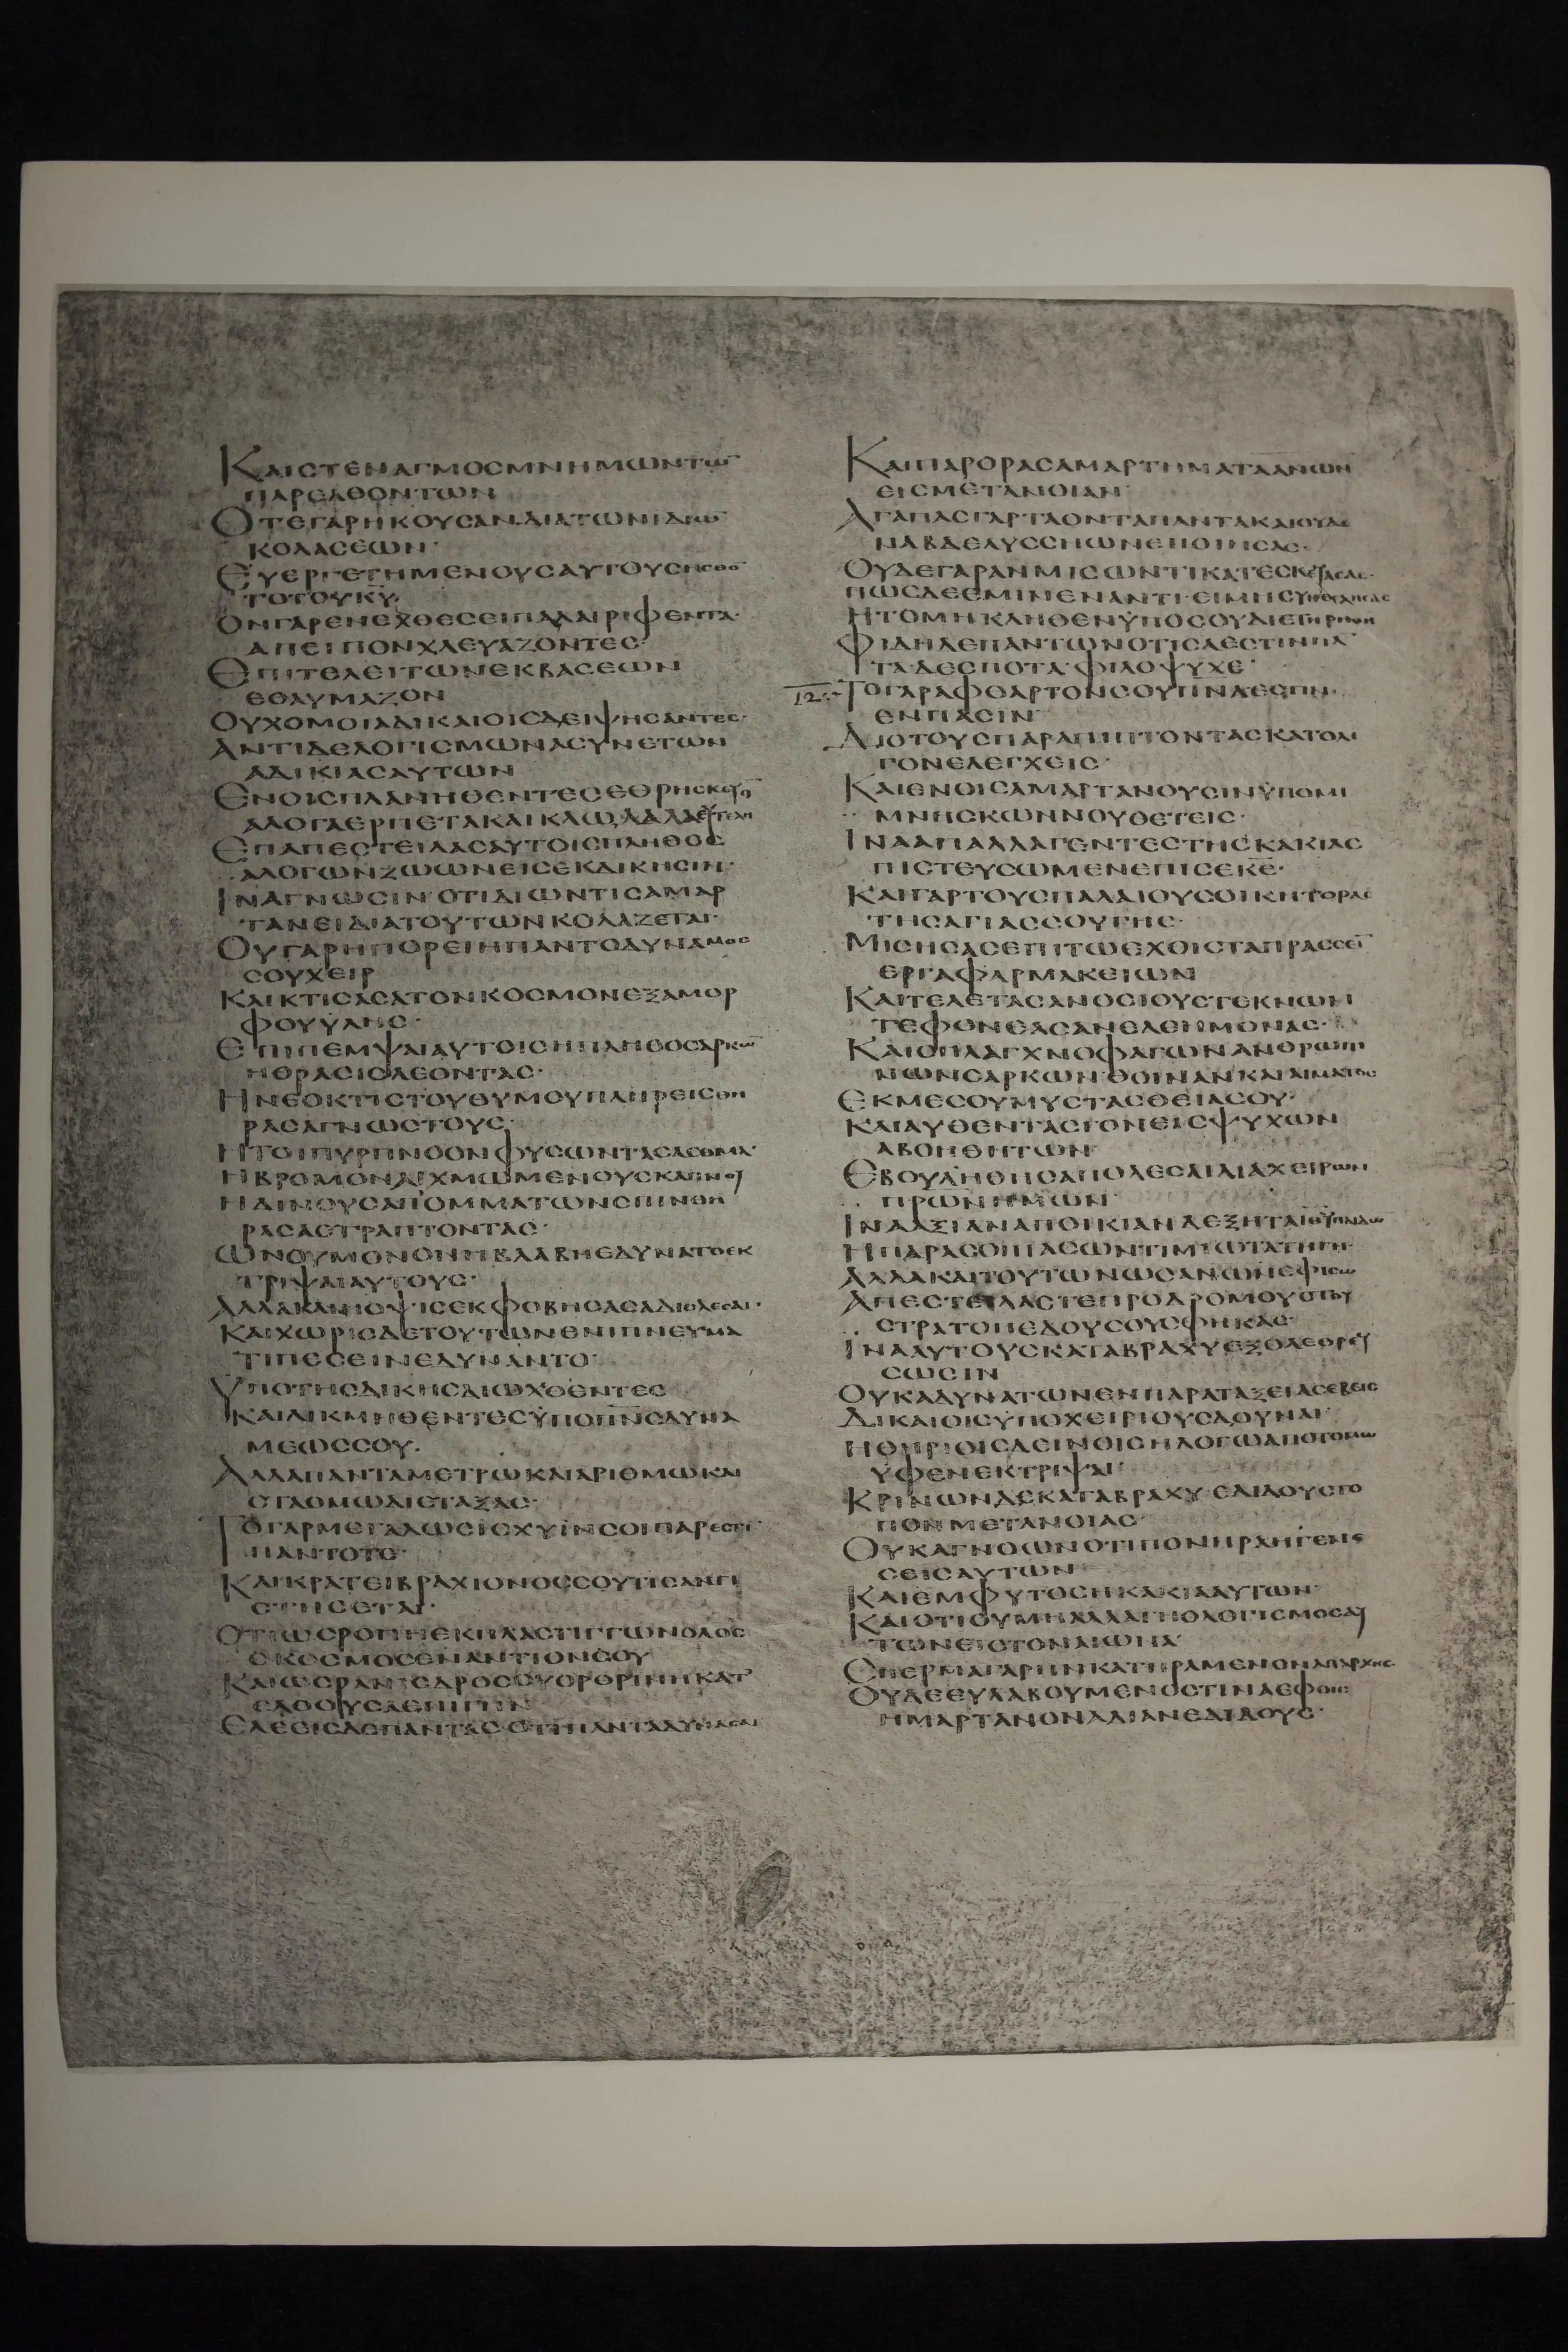 ΚΑΙϹΤΕΝΑΓΜΟϹΜΝΗΜΩΝΤΩ̅
ΠΑΡΕΛΘΟΝΤΩΝ
ΟΤΕΓΑΡΗΚΟΥϹΑΝΔΙΑΤΩΝΙΔΙΩ̅
ΚΟΛΑϹΕΩΝ·
ΕΥΕΡΓΕΤΗΜΕΝΟΥϹΑΥΤΟΥϹΗϹΘΟ̅
ΤΟΤΟΥΚ̅Υ̅
ΟΝΓΑΡΕΝΕΧΘΕϹΕΙΠΑΛΑΙΡΙΦΕΝΤΑ·
ΑΠΕΙΠΟΝΧΛΕΥΑΖΟΝΤΕϹ·
ΕΠΙΤΕΛΕΙΤΩΝΕΚΒΑϹΕΩΝ
ΕΘΑΥΜΑΖΟΝ
ΟΥΧΟΜΟΙΑΔΙΚΑΙΟΙϹΔΕΙΨΗϹΑΝΤΕϹ·
ΑΝΤΙΔΕΛΟΓΙϹΜΩΝΑϹΥΝΕΤΩΝ
ΑΔΙΚΙΑϹΑΥΤΩΝ
ΕΝΟΙϹΠΛΑΝΗΘΕΝΤΕϹΕΘΡΗϹΚΕΥΟ̅
ΑΛΟΓΑΕΡΠΕΤΑΚΑΙΚΝΩΔΑΛΑΕΥΤΕΛΗ
ΕΠΑΠΕϹΤΕΙΛΑϹΑΥΤΟΙϹΠΛΗΘΟϹ
ΑΛΟΓΩΝΖΩΩΝΕΙϹΕΚΔΙΚΗϹΙΝ·
ΙΝΑΓΝΩϹΙΝΟΤΙΔΙΩΝΤΙϹΑΜΑΡ
ΤΑΝΕΙΔΙΑΤΟΥΤΩΝΚΟΛΑΖΕΤΑΙ·
ΟΥΓΑΡΗΠΟΡΕΙΗΠΑΝΤΟΔΥΝΑΜΟϹ
ϹΟΥΧΕΙΡ
ΚΑΙΚΤΙϹΑϹΑΤΟΝΚΟϹΜΟΝΕΞΑΜΟΡ
ΦΟΥΫΛΗϹ·
ΕΠΙΠΕΜΨΑΙΑΥΤΟΙϹΗΠΛΗΘΟϹΑΡΚΩ̅
ΗΘΡΑϹΙϹΛΕΟΝΤΑϹ·
ΗΝΕΟΚΤΙϹΤΟΥΘΥΜΟΥΠΛΗΡΕΙϹΘΗ
ΡΑϹΑΓΝΩϹΤΟΥϹ·
ΗΤΟΙΠΥΡΠΝΟΟΝΦΥϹΩΝΤΑϹΑϹΘΜΑ·
ΗΒΡΟΜΟΝΛΙΧΜΩΜΕΝΟΥϹΚΑΠΝΟΥ
ΗΔΙΝΟΥϹΑΠΟΜΜΑΤΩΝϹΠΙΝΘΗ
ΡΑϹΑϹΤΡΑΠΤΟΝΤΑϹ·
ΩΝΟΥΜΟΝΟΝΗΒΛΑΒΗΕΔΥΝΑΤΟΕΚ
ΤΡΙΨΑΙΑΥΤΟΥϹ·
ΑΛΛΑΚΑΙΗΟΨΙϹΕΚΦΟΒΗϹΑϹΑΔΙΟΛΕϹΑΙ·
ΚΑΙΧΩΡΙϹΔΕΤΟΥΤΩΝΕΝΙΠΝΕΥΜΑ
ΤΙΠΕϹΕΙΝΕΔΥΝΑΝΤΟ·
ΥΠΟΤΗϹΔΙΚΗϹΔΙΩΧΘΕΝΤΕϹ
ΚΑΙΛΙΚΜΗΘΕΝΤΕϹΫΠΟΠ̅Ν̅ϹΔΥΝΑ
ΜΕΩϹϹΟΥ.
ΑΛΛΑΠΑΝΤΑΜΕΤΡΩΚΑΙΑΡΙΘΜΩΚΑΙ
ϹΤΑΘΜΩΔΙΕΤΑΞΑϹ·
ΤΟΓΑΡΜΕΓΑΛΩϹΙϹΧΥΪΝϹΟΙΠΑΡΕϹΤΙ̅
ΠΑΝΤΟΤΕ·
ΚΑΙΚΡΑΤΕΙΒΡΑΧΙΟΝΟϹϹΟΥΤΙϹΑΝΤΙ
ϹΤΗϹΕΤΑΙ·
ΟΤΙΩϹΡΟΠΗΕΚΠΛΑϹΤΙΓΓΩΝΟΛΟϹ
ΟΚΟϹΜΟϹΕΝΑΝΤΙΟΝϹΟΥ
ΚΑΙΩϹΡΑΝΙϹΔΡΟϹΟΥΟΡΘΡΙΝΗΚΑΤ
ΕΛΘΟΥϹΑΕΠΙΓΗΝ
ΕΛΕΕΙϹΔΕΠΑΝΤΑϹΟΤΙΠΑΝΤΑΔΥΝΑϹΑΙ
ΚΑΙΠΑΡΟΡΑϹΑΜΑΡΤΗΜΑΤΑΑΝΩΝ
ΕΙϹΜΕΤΑΝΟΙΑΝ·
ΑΓΑΠΑϹΓΑΡΤΑΟΝΤΑΠΑΝΤΑΚΑΙΟΥΔΕ
ΝΑΒΔΕΛΥϹϹΗΩΝΕΠΟΙΗϹΑϹ·
ΟΥΔΕΓΑΡΑΝΜΙϹΩΝΤΙΚΑΤΕϹΚΕΥΑϹΑϹ·
ΠΩϹΔΕΕΜΙΝΕΝΑΝΤΙ·ΕΙΜΗϹΥΗΘΕΛΗϹΑϹ
ΗΤΟΜΗΚΛΗΘΕΝΫΠΟϹΟΥΔΙΕΤΗΡΗΘΗ
ΦΙΔΗΔΕΠΑΝΤΩΝΟΤΙϹΑΕϹΤΙΝΠΑ̅
ΤΑΔΕϹΠΟΤΑ·ΦΙΛΟΨΥΧΕ·
12. ΤΟΓΑΡΑΦΘΑΡΤΟΝϹΟΥΠΝΑΕϹΤΙΝ·
ΕΝΠΑϹΙΝ
ΔΙΟΤΟΥϹΠΑΡΑΠΙΠΤΟΝΤΑϹΚΑΤΟΛΙ
ΓΟΝΕΛΕΓΧΕΙϹ·
ΚΑΙΕΝΟΙϹΑΜΑΡΤΑΝΟΥϹΙΝΫΠΟΜΙ
ΜΝΗϹΚΩΝΝΟΥΘΕΤΕΙϹ·
ΙΝΑΑΠΑΛΛΑΓΕΝΤΕϹΤΗϹΚΑΚΙΑϹ
ΠΙϹΤΕΥϹΩΜΕΝΕΠΙϹΕΚ̅Ε̅·
ΚΑΙΓΑΡΤΟΥϹΠΑΛΑΙΟΥϹΟΙΚΗΤΟΡΑϹ
ΤΗϹΑΓΙΑϹϹΟΥΓΗϹ·
ΜΙϹΗϹΑϹΕΠΙΤΩΕΧΘΙϹΤΑΠΡΑϹϹΕΙ̅
ΕΡΓΑΦΑΡΜΑΚΕΙΩΝ
ΚΑΙΤΕΛΕΤΑϹΑΝΟϹΙΟΥϹΤΕΚΝΩΝ
ΤΕΦΟΝΕΑϹΑΝΕΛΕΗΜΟΝΑϹ·
ΚΑΙϹΠΛΑΓΧΝΟΦΑΓΩΝΑΝΘΡΩΠΙ
ΝΩΝϹΑΡΚΩΝΘΟΙΝΑΝΚΑΙΑΙΜΑΤΟϹ
ΕΚΜΕϹΟΥΜΥϹΤΑϹΘΕΙΑϹΟΥ·
ΚΑΙΑΥΘΕΝΤΑϹΓΟΝΕΙϹΨΥΧΩΝ
ΑΒΟΗΘΗΤΩΝ
ΕΒΟΥΛΗΘΗϹΑΠΟΛΕϹΑΙΔΙΑΧΕΙΡΩΝ
Π̅Ρ̅ΩΝΗΜΩΝ·
ΙΝΑΑΞΙΑΝΑΠΟΙΚΙΑΝΔΕΞΗΤΑΙΘΥΠΑΙΔΩ̅
ΗΠΑΡΑϹΟΙΠΑϹΩΝΤΙΜΙΩΤΑΤΗΓΗ·
ΑΛΛΑΚΑΙΤΟΥΤΩΝΩϹΑΝΩΝΕΦΙϹΩ
ΑΠΕϹΤΕΙΛΑϹΤΕΠΡΟΔΡΟΜΟΥϹΤΟΥ
ϹΤΡΑΤΟΠΕΔΟΥϹΟΥϹΦΗΚΑϹ·
ΙΝΑΑΥΤΟΥϹΚΑΤΑΒΡΑΧΥΕΞΟΛΕΘΡΕΥ
ϹΩϹΙΝ
ΟΥΚΑΔΥΝΑΤΩΝΕΝΠΑΡΑΤΑΞΕΙΑϹΕΒΕΙϹ
ΔΙΚΑΙΟΙϹΫΠΟΧΕΙΡΙΟΥϹΔΟΥΝΑΙ·
ΗΘΗΡΙΟΙϹΔΕΙΝΟΙϹΗΛΟΓΩΑΠΟΤΟΜΩ
ΫΦΕΝΕΚΤΡΙΨΑΙ·
ΚΡΙΝΩΝΔΕΚΑΤΑΒΡΑΧΥ·ΕΔΙΔΟΥϹΤΟ
ΠΟΝΜΕΤΑΝΟΙΑϹ·
ΟΥΚΑΓΝΟΩΝΟΤΙΠΟΝΗΡΑΗΓΕΝΕ
ϹΕΙϹΑΥΤΩΝ
ΚΑΙΕΜΦΥΤΟϹΗΚΑΚΙΑΑΥΤΩΝ·
ΚΑΙΟΤΙΟΥΜΗΑΛΛΑΓΗΟΛΟΓΙϹΜΟϹΑΥ
ΤΩΝΕΙϹΤΟΝΑΙΩΝΑ·
ϹΠΕΡΜΑΓΑΡΗΝΚΑΤΗΡΑΜΕΝΟΝΑΠΑΡΧΗϹ·
ΟΥΔΕΕΥΛΑΒΟΥΜΕΝΟϹΤΙΝΑΕΦΟΙϹ
ΗΜΑΡΤΑΝΟΝΑΔΙΑΝΕΔΙΔΟΥϹ·